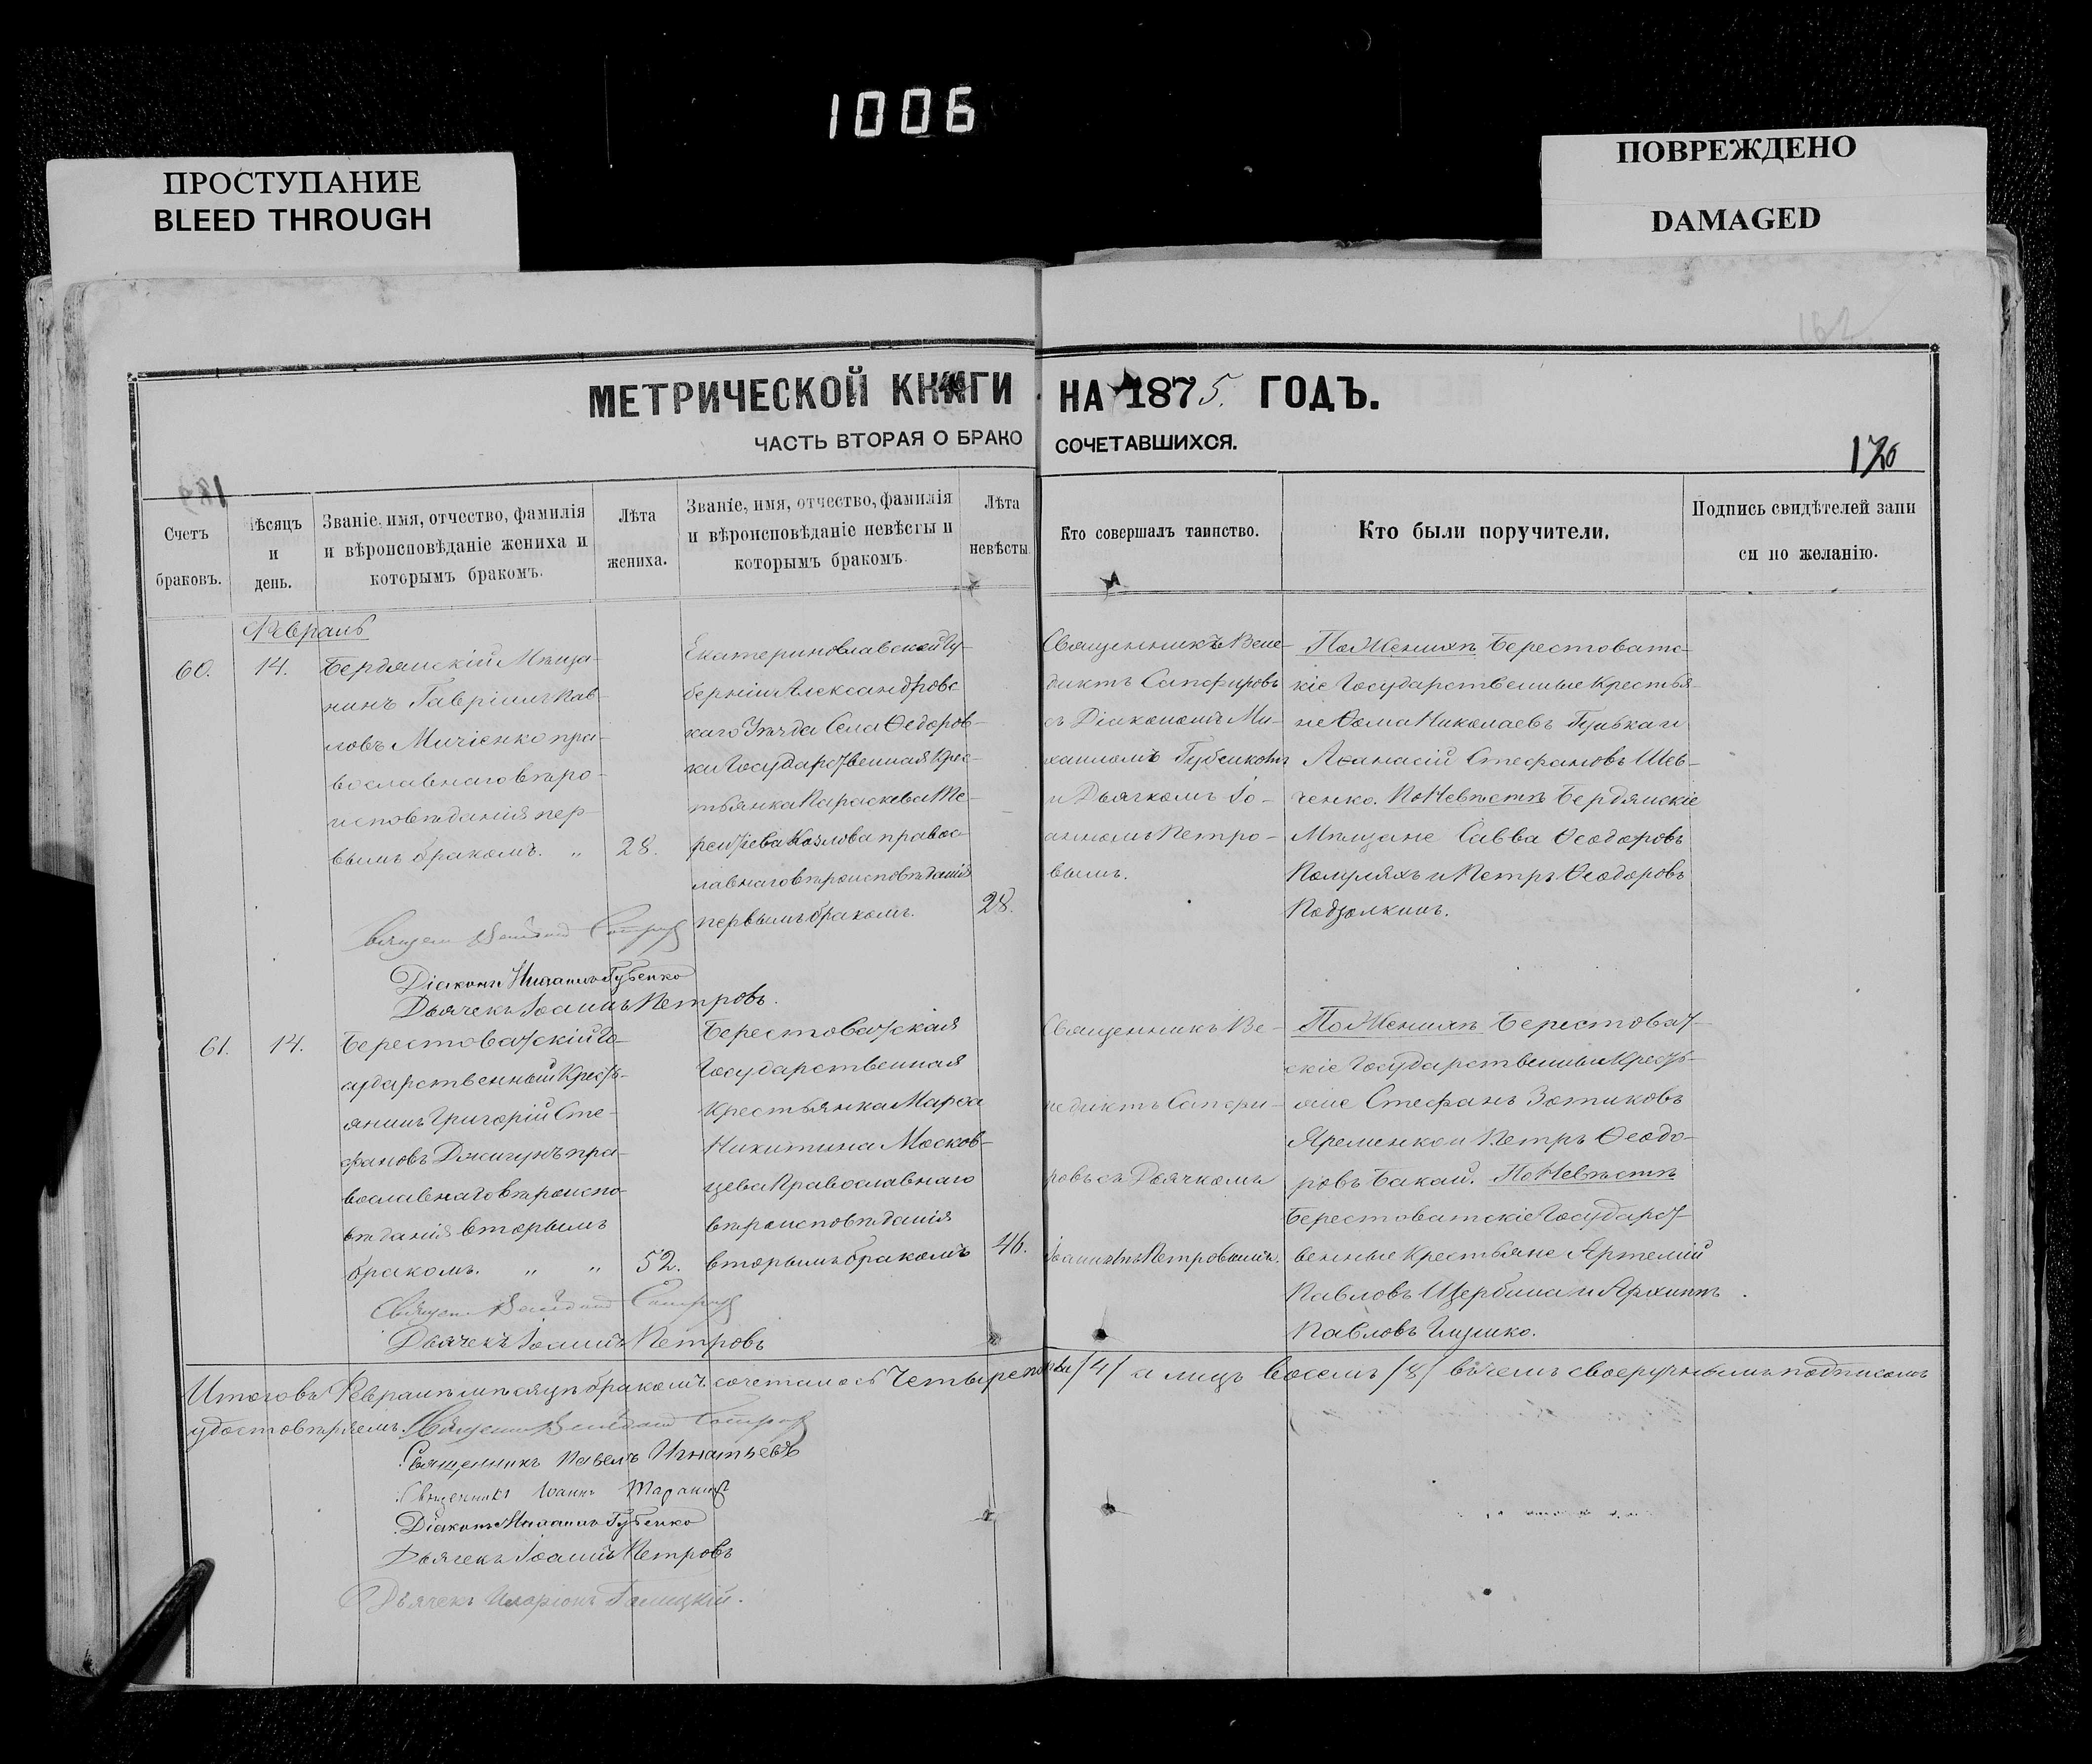 1006
ПРОСТУПАНИЕ
BLEED THROUGH
ПОВРЕЖДЕНО
DAMAGED
162
МЕТРИЧЕСКОЙ КНИГИ НА 1875. ГОДЪ.
ЧАСТЬ ВТОРАЯ О БРАКО СОЧЕТАВШИХСЯ.
Счетъ
браковъ.
Мѣсяцъ
и
день.
Званіе, имя, отчество, фамилія
и вѣроисповѣданіе жениха и
которымъ бракомъ.
Лѣта
жениха.
Званіе, имя, отчество, фамилія
и вѣроисповѣданіе невѣсты и
которымъ бракомъ.
Лѣта
невѣсты.
Кто совершалъ таинство.
Кто были поручители.
Подпись свидѣтелей запи
си по желанію.
Февраль
60.
14.
Бердянскій Мѣща-
нинъ Гавріилъ Пав-
ловъ Мичіенко пра-
вославнаго вѣро-
исповѣданія пер-
вымъ бракомъ. „
28.
Екатеринославской Гу-
берніи Александровс
каго Уѣзда Села Ѳедоров-
ки Государственная Крес-
тьянка Параскева Те-
рентіева Козлова правос-
лавнаго вѣроисповѣданія
первымъ бракомъ.
28.
Священникъ Вене-
диктъ Сапфировъ
съ Діакономъ Ми-
хаиломъ Губенкомъ
и Дьячкомъ Іо-
анномъ Петро-
вымъ.
По Женихѣ Берестоватс-
кіе Государственные Крестья-
не Ѳома Николаевъ Гулька и
Аѳанасій Стефановъ Шев-
ченко. По Невѣстѣ Бердянскіе
Мѣщане Савва Ѳеодоровъ
и Петръ Ѳеодоровъ
Подзолкинъ.
Діаконъ Михаилъ Губенко
Дьячекъ Іоаннъ Петровъ.
61.
14.
Берестоватскій Го-
сударственный Кресть-
янинъ Григорій Сте-
фановъ Джигунъ пра-
вославнаго вѣроиспо-
вѣданія вторымъ
бракомъ. „ „
52.
Берестоватская
Государственная
Крестьянка Марѳа
Никитина Москов-
цева Православнаго
вѣроисповѣданія
вторымъ бракомъ
46.
Священникъ Ве-
недиктъ Сапфи-
ровъ съ Дьячкомъ
Іоанномъ Петровымъ.
По Женихѣ Берестоват-
скіе Государственные Кресть-
яне Стефанъ Зотиковъ
Яременко и Петръ Ѳеодо-
ровъ Бакай. По Невѣстѣ
Берестоватскіе Государст-
венные Крестьяне Артемій
Павловъ Щербина и Архиппъ
Павловъ
Дьячекъ Іоаннъ Петровъ
Итого въ Февралѣ мѣсяцѣ бракомъ сочеталось Четыре /4/ а лицъ восемь /8/ въ чемъ своеручнымъ подписомъ
удостовѣряемъ.
Священникъ Павелъ Игнатьевъ
Священникъ Іоаннъ
Діаконъ Михаилъ Губенко
Дьячекъ Іоаннъ Петровъ
Дьячекъ Иларіонъ Галицкій.